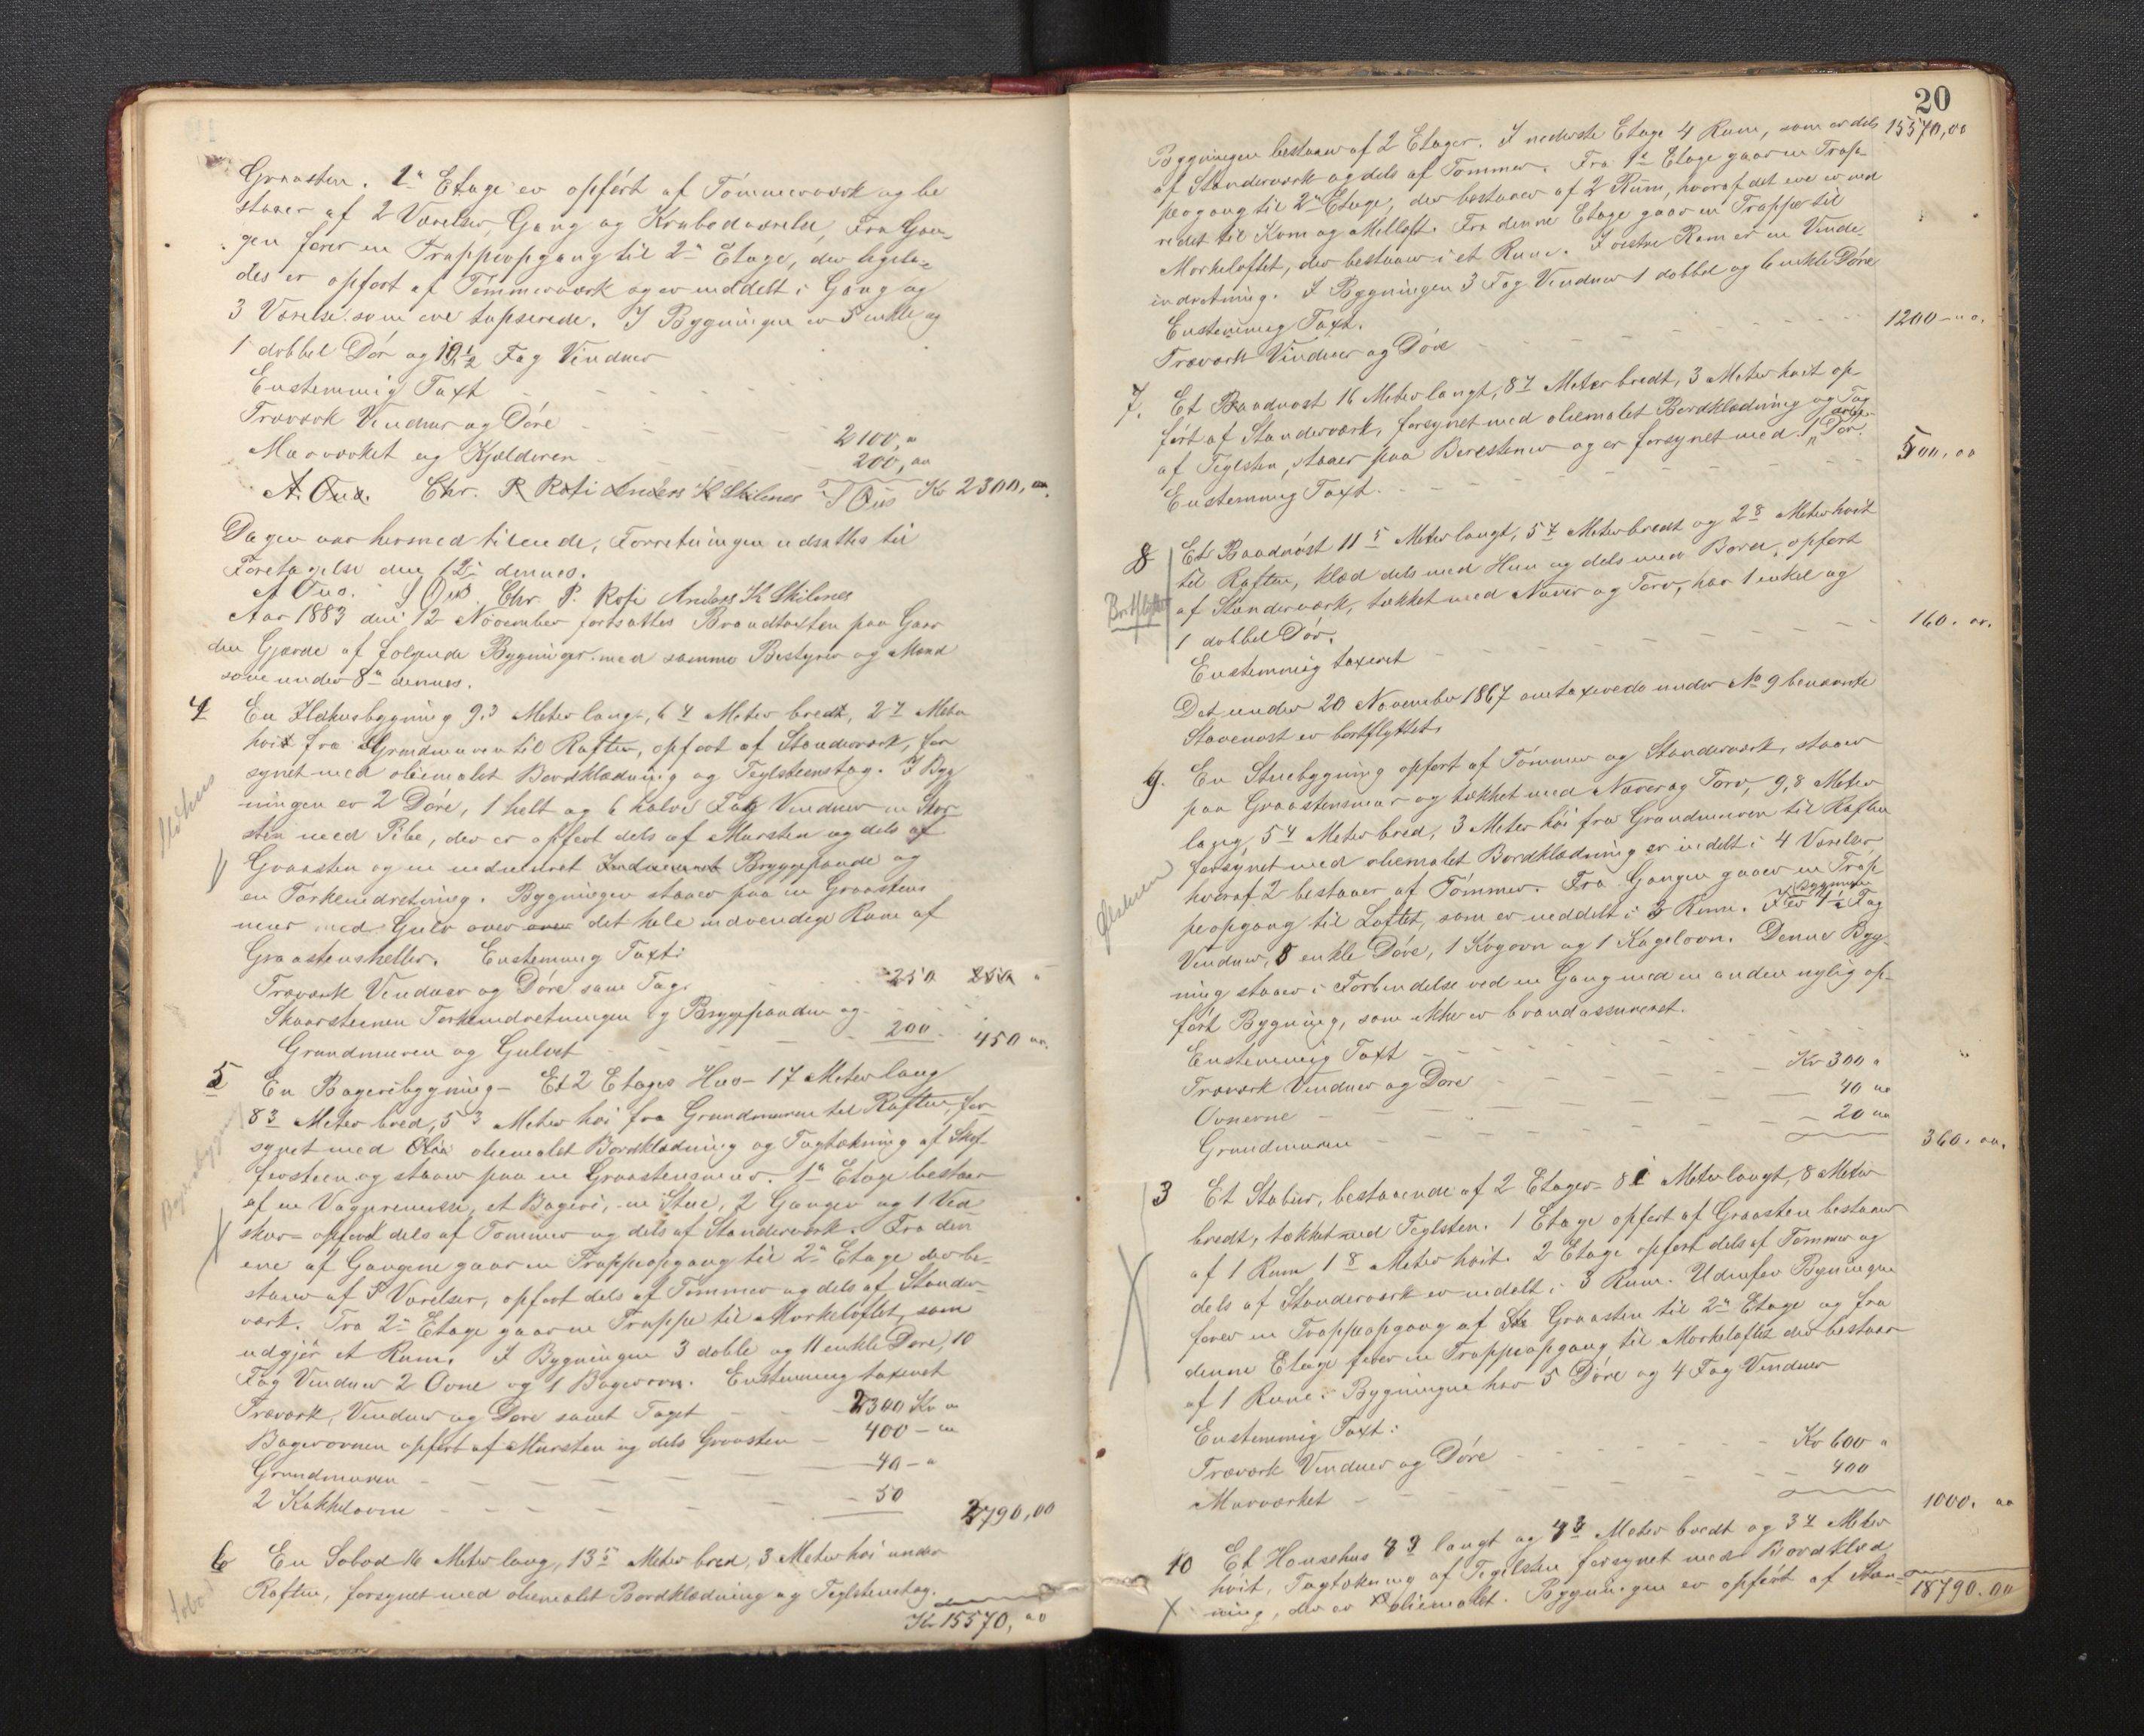 Graasten. 1ª Etage er opført af Tømmerværk og be
staaer af 2 Værelser, Gang og Krubodværelse, Fra Gan-
gen fører en Trappeopgang til 2ª Etage, der ligele-
des er opført af Tømmerværk og er inddelt i Gang og
3 Værelse som ere tapserede. I Bygningen er 5 enkle og
1 dobbel Dør og 19½ Fag Vinduer
Enstemmig Taxt
Træværk Vinduer og Døre 2100,"
Murværket og Kjælderen 200,00
A. Ous. Chr. P. Rofi Anders K Skilnes J Ous Kr 2300,00.
Dagen var hermed tilende, Forretningen udsattes til
Foretagelse den 12te dennes.
A Ous. J Ous. Chr. P. Rofi Anders K Skilnes
Aar 1883 den 12 November fortsattes Brandtaxten paa Gaar
den Gjærde af følgende Bygninger med samme Bestyrer og Mænd
som under 8ª dennes.
4 En Ildhusbygning 9,3 Meter langt, 6 4 Meter bredt, 2 7 Meter
høit fra Grundmuren til Raften, opført af Standerværk, for
synet med oliemalet Bordklædning og Teglsteenstag. I Byg
ningen er 2 Døre, 1 helt og 6 halve Fag Vinduer en Skor-
sten med Pibe, der er opført dels af Mursten og dels af
Graasten og en indmuret Bryggepande og
en Tørkeindretning. Bygningen staaer paa en Graastens
muur med Gulv over over det hele indvendige Rum af
Graastensheller. Enstemmig Taxt:
Træværk Vinduer og Døre samt Tag 250 250 "
Skaarsteinen Tørkeindretningen og Bryggepanden og
Grundmuren og Gulvet 200 450 00.
5 En Bageribygning - Et 2 Etages Hus - 17 Meter lang
8 3 Meter bred, 5 3 Meter høi fra Grundmuren til Raften, for-
synet med Olia oliemalet Bordklædning og Tagtækning af Skif-
fersteen og staaer paa en Graastensmuur. 1ª Etage bestaar
af en Vaaneremise, et Bageri, en Stue, 2 Ganger og 1 Ved
skur - opført dels af Tømmer og dels af Standerværk. Fra den
ene af Gangene gaar en Trappeopgang til 2ª Etage der be-
staar af 5 Værelser, opført dels af Tømmer og dels af Stander-
værk. Fra 2ª Etage gaar en Trappe til Mørkeloftet, som
udgjør et Rum. I Bygningen 3 doble og 11 enkle Døre, 10
Fag Vinduer 2 Ovne og 1 Bagerovn. Enstemmig taxeret
Træværk, Vinduer og Døre samt Taget 2300 Kr "
Bagerovnen opført af Mursten og dels Graasten - 400 - 00
Grundmuren - 40 - "
2 Kakkelovne - 50 2790,00
6 En Søbod 16 Meter lang, 13 5 Meter bred, 3 Meter høi under
Raften, forsynet med oliemalet Bordklædning og Teglsteenstag.
Kr 15570,00
Ildhus
Bageribygning
Søbod
20
15570,00
Bygningen bestaaer af 2 Etager. I nederste Etage 4 Rum, som er dels
af Standerværk og dels af Tømmer. Fra 1ª Etage gaar en Trap-
peogang til 2ª Etage, der bestaaer af 2 Rum, hvoraf det ene er ind
redet til Korn og Melloft. Fra denne Etage gaar en Trappe til
Mørkeloftet, der bestaaer i et Rum. I østre Rum er en Vinde-
indretning. I Bygningen 3 Fag Vinduer 1 dobbel og 6 enkle Døre
Enstemmig Taxt.
Træværk Vinduer og Døre 1200 - " 0.
7. Et Baadnøst 16 Meter langt, 8 7 Meter bredt, 3 Meter høit op-
ført af Standerværk, forsynet med oliemalet Bordklædning og Tag
af Teglsten, staaer paa Berestener og er forsynet med 1 Dør.
Enstemmig Taxt. 500,00
8 Et Baadnøst 11 5 Meter langt, 5 7 Meter bredt og 2 8 Meter høit
til Raften, klæd dels med Hun og dels med Borde, opført
af Standerværk, tækket med Næver og Torv, har 1 enkel og
1 dobbel Dør.
Enstemmig taxeret 160. 00.
Bortflyttet
Det under 20 November 1867 omtaxerede under No 9 benævnte
Stavenøst er bortflyttet.
9. En Stuebygning opført af Tømmer og Standerværk, staaer
paa Graastensmuur og tækket med Næver og Torv, 9,8 Meter
lang, 5 4 Meter bred, 3 Meter høi fra Grundmuren til Raften
forsynet med oliemalet Bordklædning er inddelt i 4 Værelser
hvoraf 2 bestaaer af Tømmer. Fra Gangen gaaer en Trap
peopgang til Loftet, som er inddelt i 3 Rum. I Bygningen er 4½ Fag
Vinduer, 8 enkle Døre, 1 Kogovn og 1 Kagelovn. Denne Byg-
ning staaer i Forbindelse ved en Gang med en anden nylig op-
ført Bygning, som ikke er brandassureret.
Enstemmig Taxt
Træværk Vinduer og Døre Kr 300 "
Ovnerne 40 00
Grundmuren 20 00 360. 00.
3 Et Stabur, bestaaende af 2 Etager - 8 1 Meter langt, 8 Meter
bredt, tækket med Teglsten. 1 Etage opført af Graasten bestaaer
af 1 Rum 1 8 Meter høit. 2 Etage opført dels af Tømmer og
dels af Standerværk er inddelt i 3 Rum. Udenfor Bygningen
fører en Trappeopgang af Graasten til 2ª Etage og fra
denne Etage fører en Trappeopgang til Mørkeloftet der bestaar
af 1 Rum. Bygningen har 5 Døre og 4 Fag Vinduer
Enstemmig Taxt:
Træværk Vinduer og Døre Kr 600 "
Murværket 400 1000. 00
10 Et Hønsehus langt og Meter bredt og 3 4 Meter
høit, Tagtækning af Teglsten forsynet med Bordklæd
ning, der er oliemalet. Bygningen er opført af Stan-
18790.00